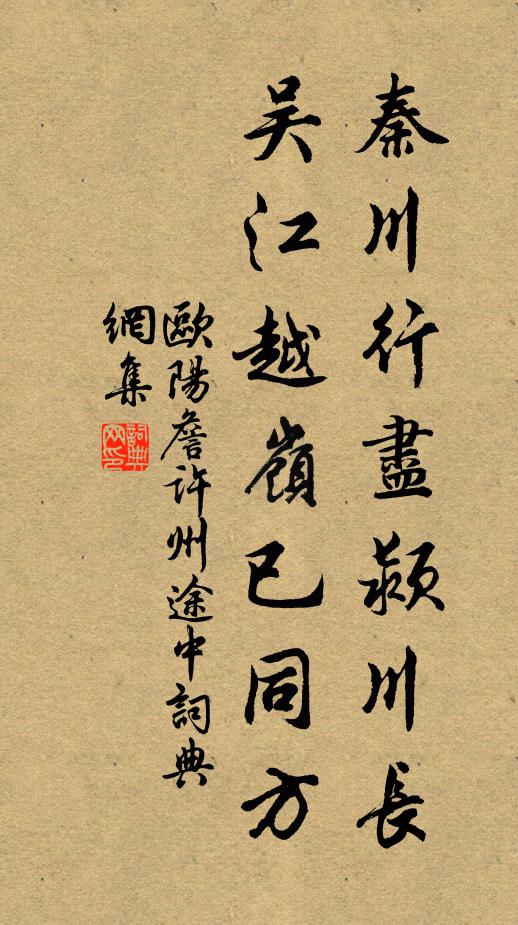 秦川行盡颍川長
吴江越嶺已同方
歐陽詹許州途中詞典
網集
詞典
网印